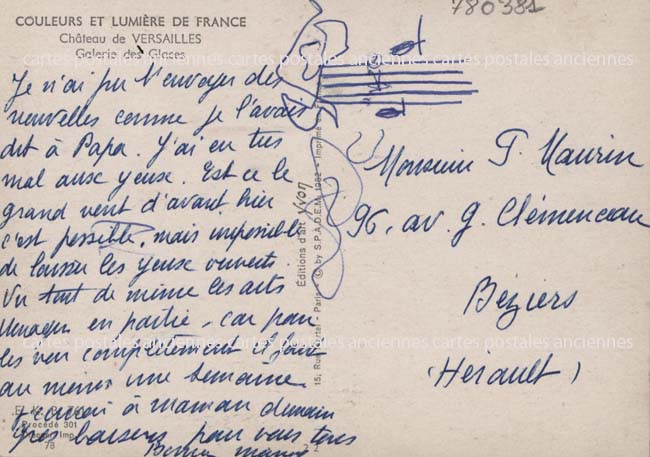 COULEURS ET LUMIÈRE DE FRANCE
Château de VERSAILLES
Galerie des Glaces
cartes postales anciennes cartes postales anciennes cartes postales anciennes
Je n'ai pu t'envoyer des
nouvelles comme je l'avais
dit à Papa. J'ai eu très
mal aux yeux. Est ce le
grand vent d'avant hier
c'est possible, mais impossible
de laisser les yeux ouverts
Vu tout de même les arts
ménagers en partie, car pour
les voir complètement il faut
au moins une semaine.
à maman demain
Gros baisers pour vous tous
Procédé 301
Imp.
78
22
Éditions d'art Yvon
15, Rue Martel - Paris - © by S.P.A.D.E.M. 1962 - Imprimé
780381
Monsieur P. Maurin
96, av. G. Clémenceau
Béziers
(Hérault)